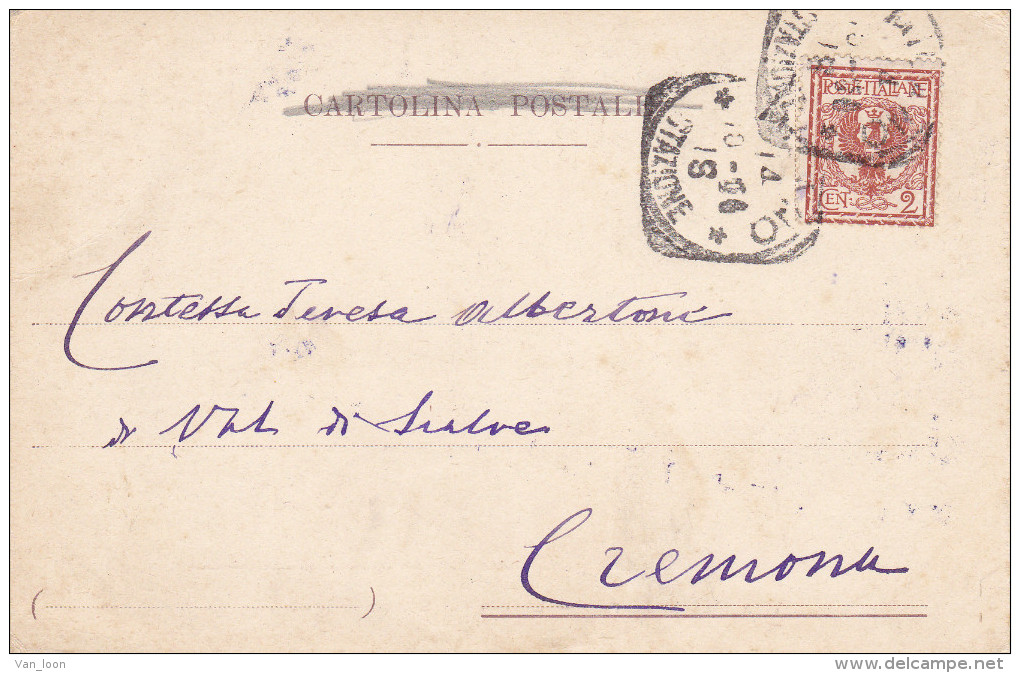 CARTOLINA POSTALE
POSTE ITALIANE
CEN: 2
STAZIONE
Contessa Teresa Albertoni
di Val di Scalve
Cremona
( )
Van_loon
delcampe.net